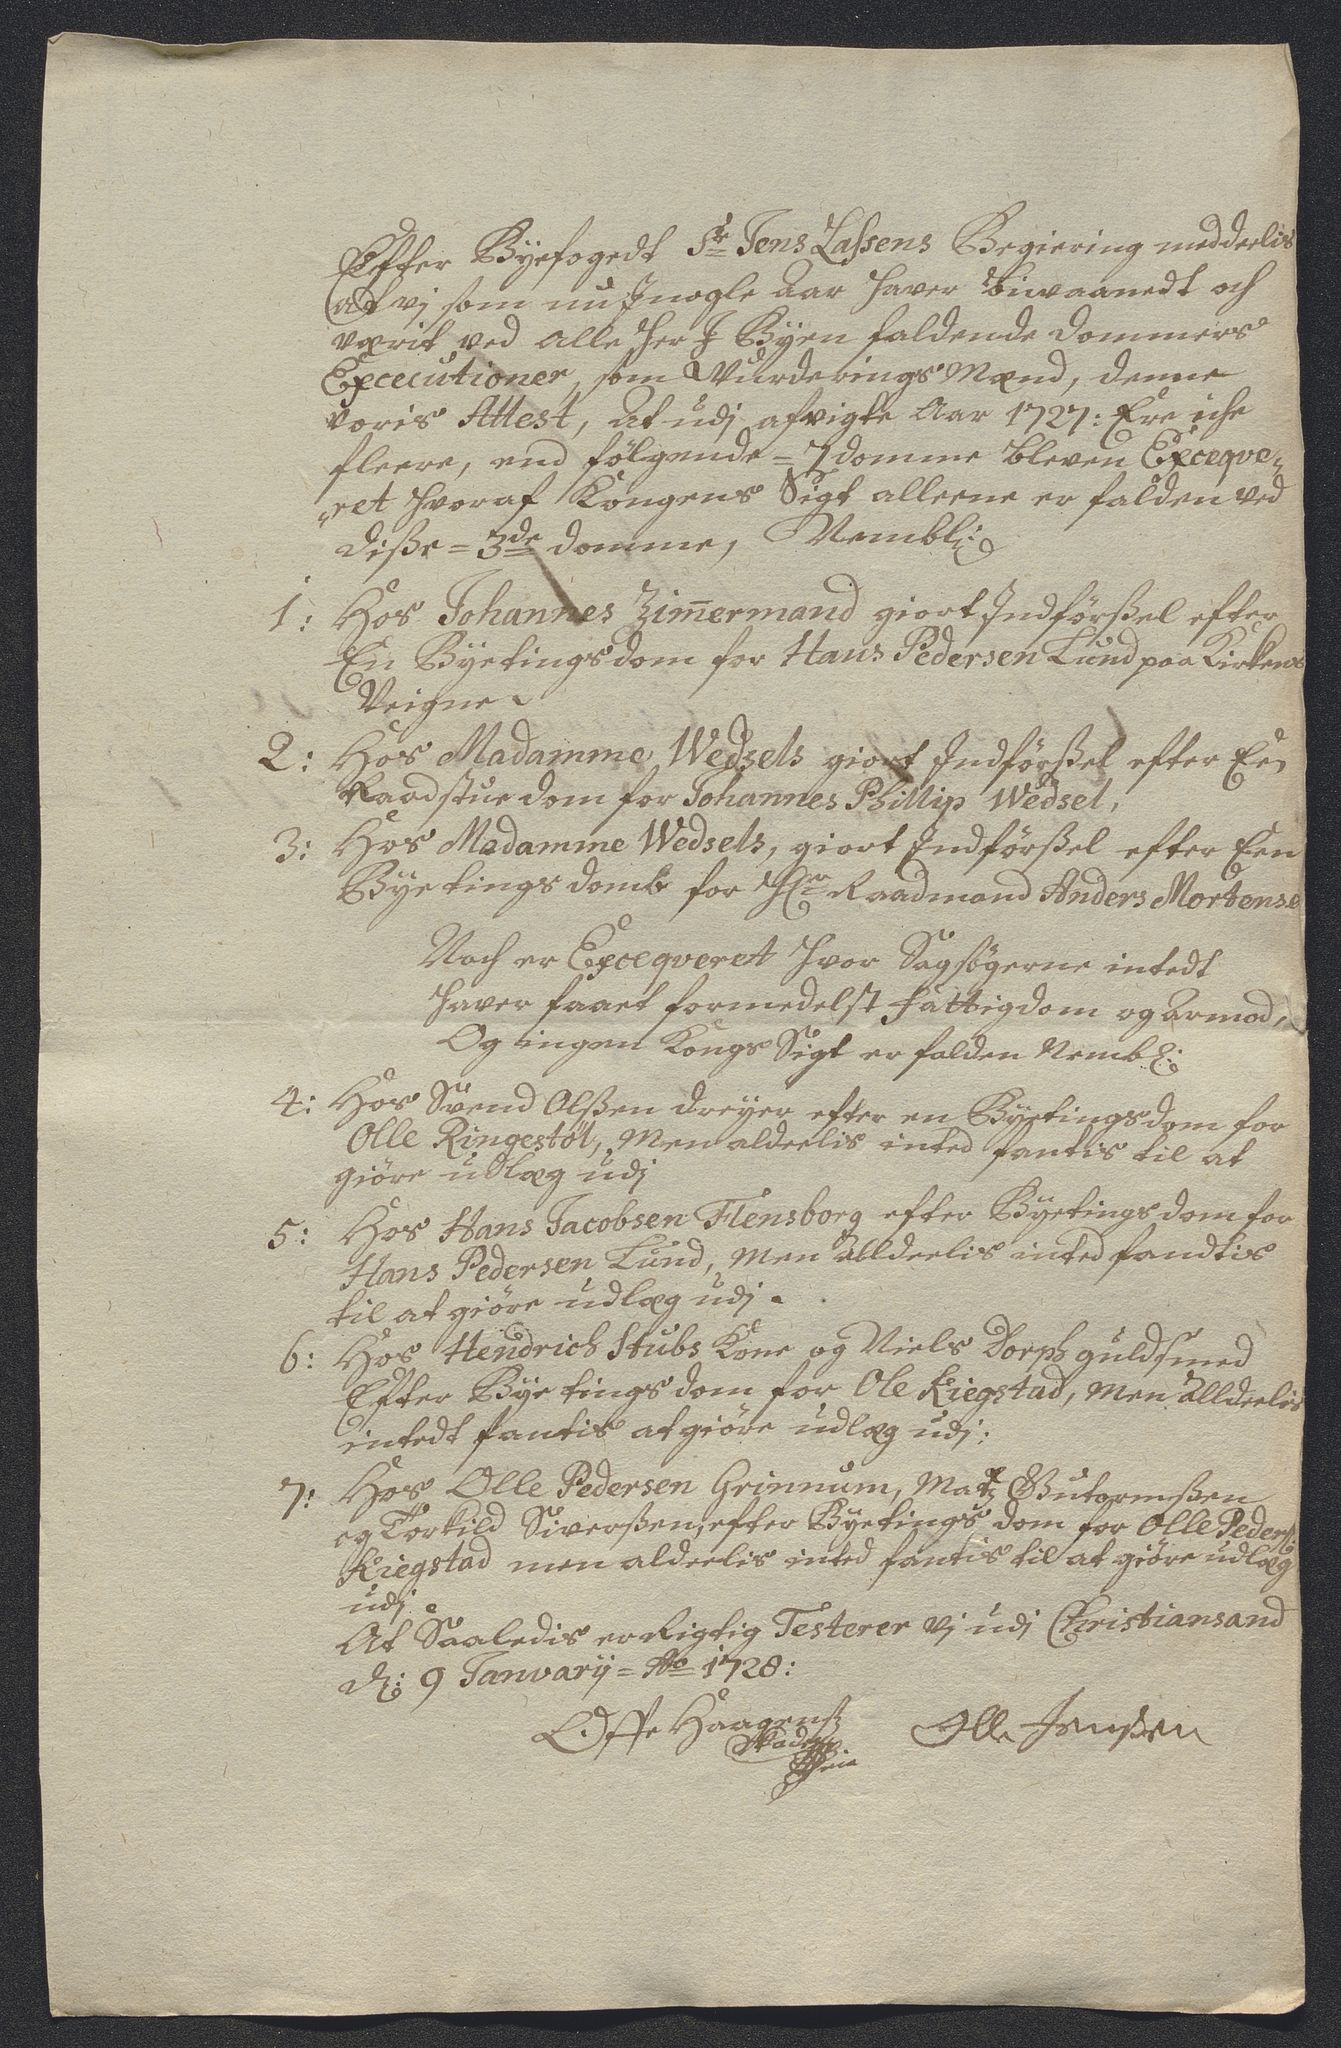 Effter Byefogedt Sr Jens Lassens Begiering meddeelis
at vj som nu Jnogle Aar haver biwaanedt och
værit ved alle her J Byen faldende dommers
Excecutioner, som Wurderings Mænd, denne
voris Attest, At udj afvigte Aar 1727: Ere iche
fleere, end følgende = 7 domme bleven Exceqve-
„ret hvoraf Kongens Sigt alleene er falden ved
disse = 3de domme, Nembl:
1: Hos Johannes Zimermand giort Jndførßel efter
En Byetingsdom for Hans Pedersen Lund paa Kirkens
Veigne
2: Hos Madamme Wedsels giort Jndførßel efter Een
Raadstue dom for Johannes Phillip Wedsel,
3: Hos Madamme Wedsels, giort Jndførßel efter Een
Byetings domb for Hr Raadmand Anders Mortense
Noch er Exceqveret hvor Sagsøgerne intedt
haver faaet formedelst fattigdom og armod,
Og ingen Kongs Sigt er falden Nembl:
4: Hos Svend Olßen dreyer efter en Byetingsdom for
Olle Ringestøl, Men aldeelis inted fantis til at
giøre udlæg udj
5: Hos Hans Jacobsen Flensborg efter Byetings dom for
Hans Pedersen Lund, Men alldeelis inted fandtis
til at giøre udlæg udj.
6: Hos Hendrich Stubs Kone og Niels Dorph guldsmed
Efter Byetings dom for Ole Kiegstad, Men alldeelis
intedt fantis at giøre udlæg udj:
7: Hos Olle Pedersen Grinnum, Matz Gutormßen
og Torkild Siverßen, efter Byetings dom for Olle Peders
Kiegstad men aldeelis inted fantis til at giøre udlæg
udj
At Saaledis er Rigtig Testerer vj udj Christiansand
d: 9 Janvarij = Ao 1728:
Offe Haagenß Olle Jensßen